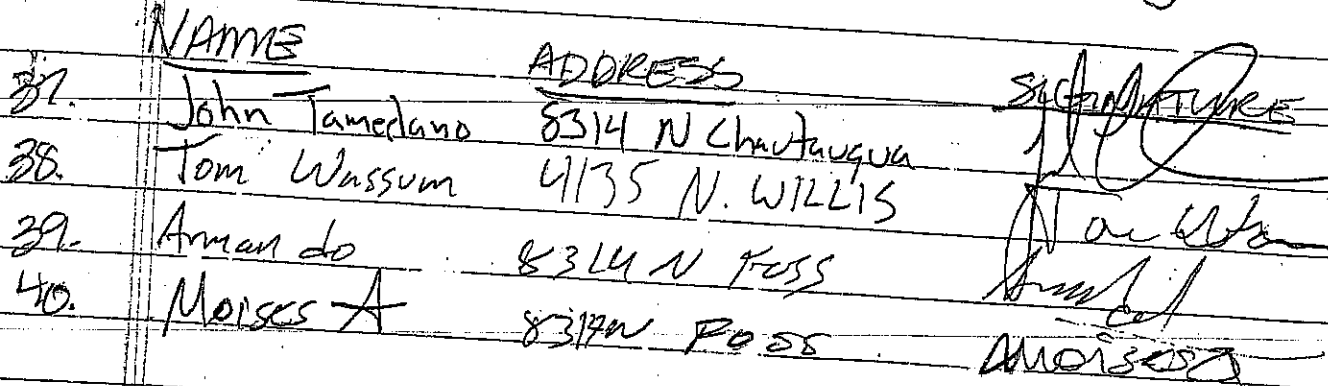 NAME ADDRESS SIGNATURE
37. John Tamedano 8314 N Chautauqua
38. Tom Wassum 4135 N. WILLIS
39. Armando 8314 N Foss
40. Moises A 8314 N FOSS Moises A